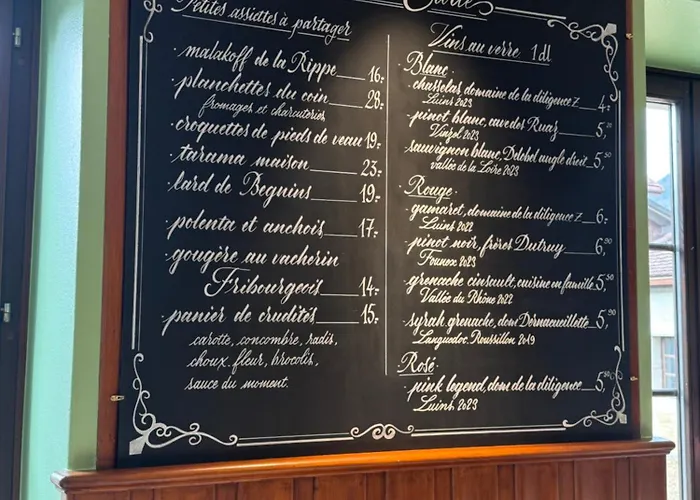 Carte
Petites assiettes à partager
· malakoff de la Rippe 16.-
· planchettes du coin 28.-
fromages et charcuteries
· croquettes de pieds de veau 19.-
· tarama maison 23.-
· lard de Begnins 19.-
· polenta et anchois 17.-
· gougère au vacherin
Fribourgeois 14.-
· panier de crudités 15.-
carotte, concombre, radis,
choux fleur, brocolis,
sauce du moment.
Vins au verre 1dl
· Blanc ·
· chasselas domaine de la diligence 4.-
Luins 2023
· pinot blanc, cave des Ruaz 5,
Vinzel 2023
· sauvignon blanc, Delobel angle droit 5,50
vallée de la Loire 2023
· Rouge ·
· gamaret, domaine de la diligence 6.-
Luins 2022
· pinot noir, frères Dutruy 6,90
Founex 2023
· grenache cinsault, cuisine en famille 5,50
Vallée du Rhône 2022
· syrah, grenache, dom Dernacueillette 5,90
Languedoc Roussillon 2019
Rosé
· pink legend, dom de la diligence 5,
Luins 2023